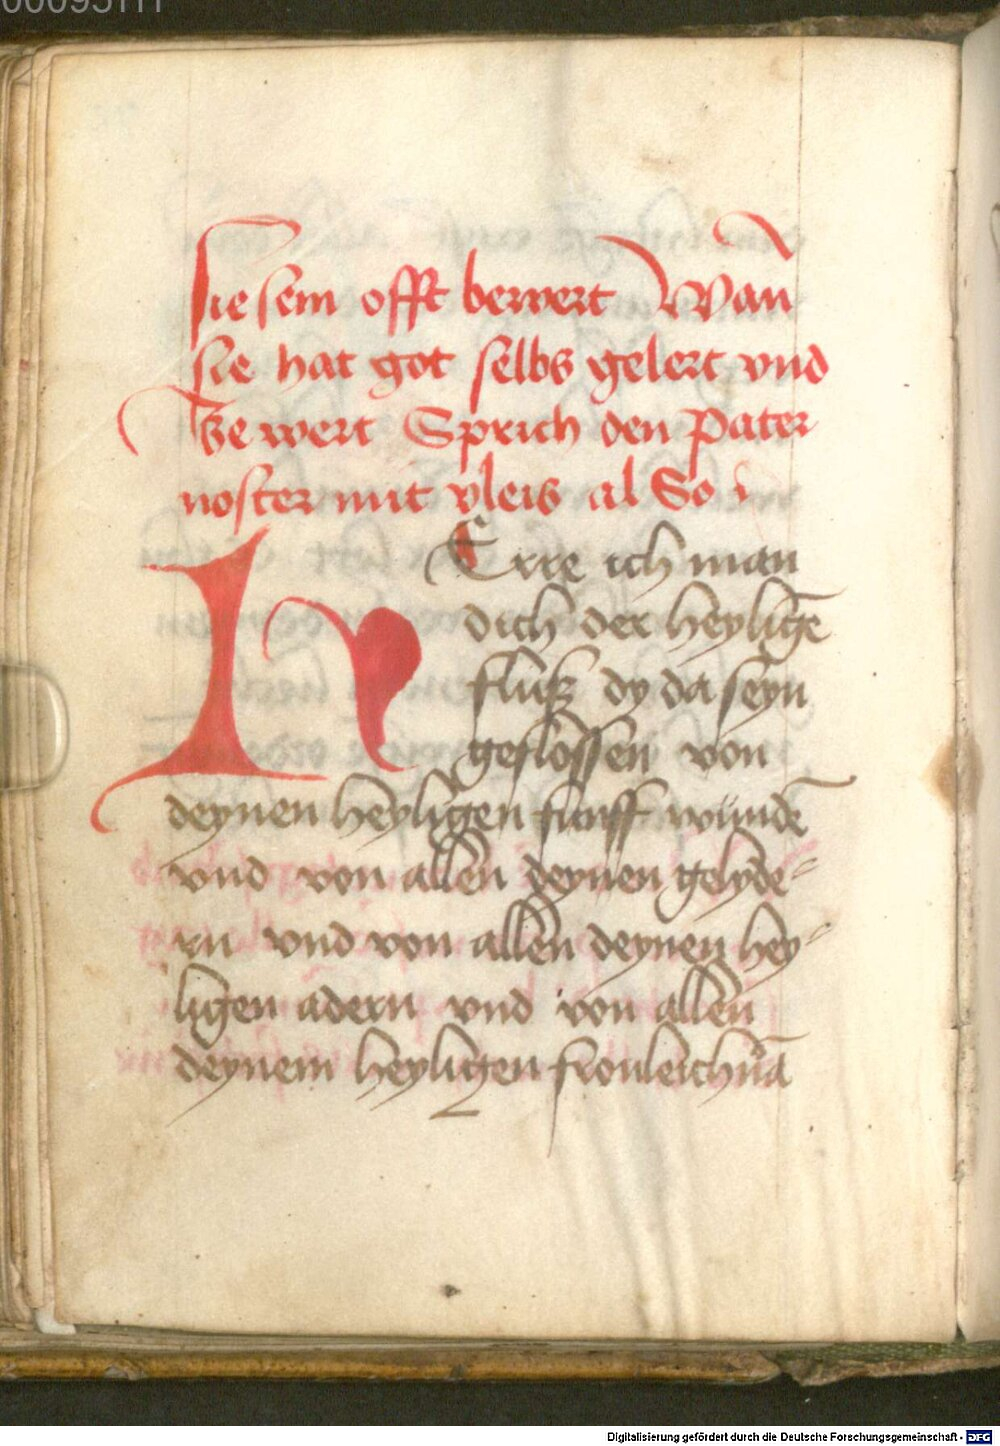 sie sein offt bewert Wan̄
sie hat got selbs gelert vnd
ze wert Sprich den Pater
noster mit vleis al So
HErre ich man
dich der heylige͂
fluß dy da seyn
geflossen von
deynen heyligen funff wunde͂
vnd von allen deynen gelyde-
rn vnd von allen deynen hey-
ligen adern vnd von allen
deynem heyligen fronleichnā
Digitalisierung gefördert durch die Deutsche Forschungsgemeinschaft - DFG